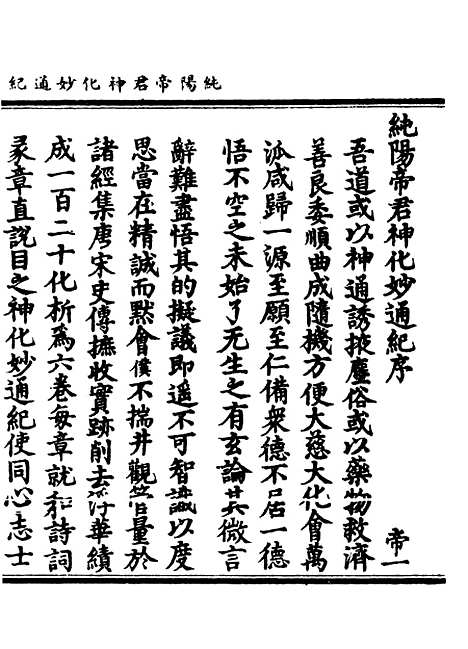 純陽帝君神化妙通紀
純陽帝君神化妙通紀序
帝一
吾道或以神通誘掖塵俗或以藥物救濟
善良委順曲成隨機方便大慈大化會萬
派咸歸一源至願至仁備衆德不居一德
悟不空之未始了无生之有玄論其微言
辭難盡悟其的擬議即遥不可智識以度
思當在精誠而黙會僕不揣井觀管量於
諸經集唐宋史傳摭收實跡削去浮華績
成一百二十化析爲六卷每章就和詩詞
彖章直説目之神化妙通紀使同心志士